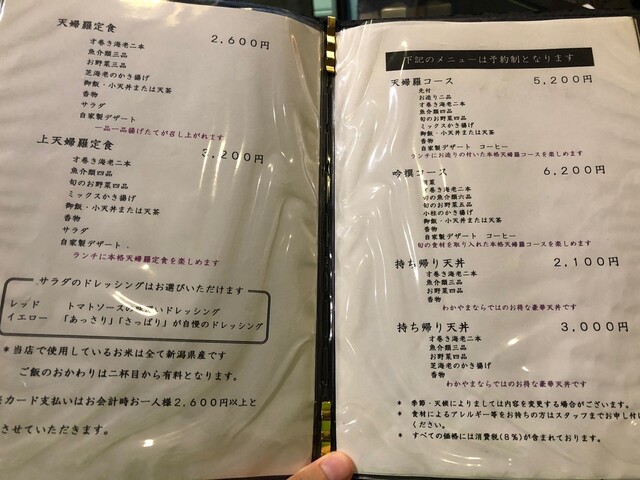 天婦羅定食 2,600円
才巻き海老二本
魚介類三品
お野菜三品
芝海老のかき揚げ
御飯・小天丼または天茶
香物
サラダ
自家製デザート
一品一品揚げたてが召し上がれます
上天婦羅定食 3,200円
才巻き海老二本
魚介類四品
旬のお野菜四品
ミックスかき揚げ
御飯・小天丼または天茶
香物
サラダ
自家製デザート
ランチに本格天婦羅定食を楽しめます
サラダのドレッシングはお選びいただけます
レッド トマトソースの ドレッシング
イエロー 「あっさり」「さっぱり」が自慢のドレッシング
*当店で使用しているお米は全て新潟県産です
ご飯のおかわりは二杯目から有料となります。
カード支払いはお会計時お一人様2,600円以上と
させていただきます。
下記のメニューは予約制となります
天婦羅コース 5,200円
先付
お造り二品
才巻き海老二本
魚介類四品
旬のお野菜四品
ミックスかき揚げ
御飯・小天丼または天茶
香物
自家製デザート コーヒー
ランチにお造りの付いた本格天婦羅コースを楽しめます
吟撰コース 6,200円
才巻き海老二本
旬の魚介類六品
旬のお野菜五品
小柱のかき揚げ
御飯・小天丼または天茶
香物
自家製デザート コーヒー
旬の食材を取り入れた本格天婦羅コースを楽しめます
持ち帰り天丼 2,100円
才巻き海老二本
魚介類二品
お野菜二品
香物
わかやまならではのお得な豪華天丼です
持ち帰り天丼 3,000円
才巻き海老二本
魚介類三品
お野菜四品
芝海老のかき揚げ
香物
わかやまならではのお得な豪華天丼です
* 季節・天候によりましては内容を変更する場合がございます。
* 食材によるアレルギー等をお持ちの方はスタッフまでお申し付け
ください。
* すべての価格には消費税(8%)が含まれております。